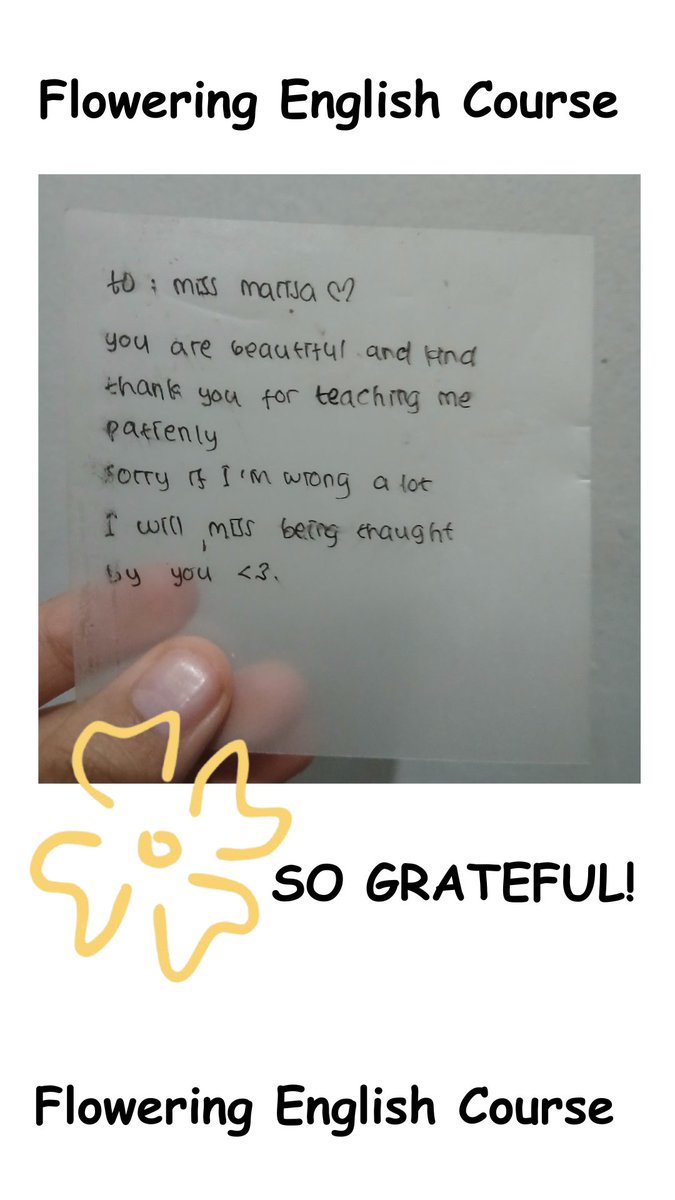 Flowering English Course
to : miss marisa ♡
you are beautiful and kind
thank you for teaching me
patienly
sorry if I'm wrong a lot
I will miss being thaught
by you <3.
SO GRATEFUL!
Flowering English Course